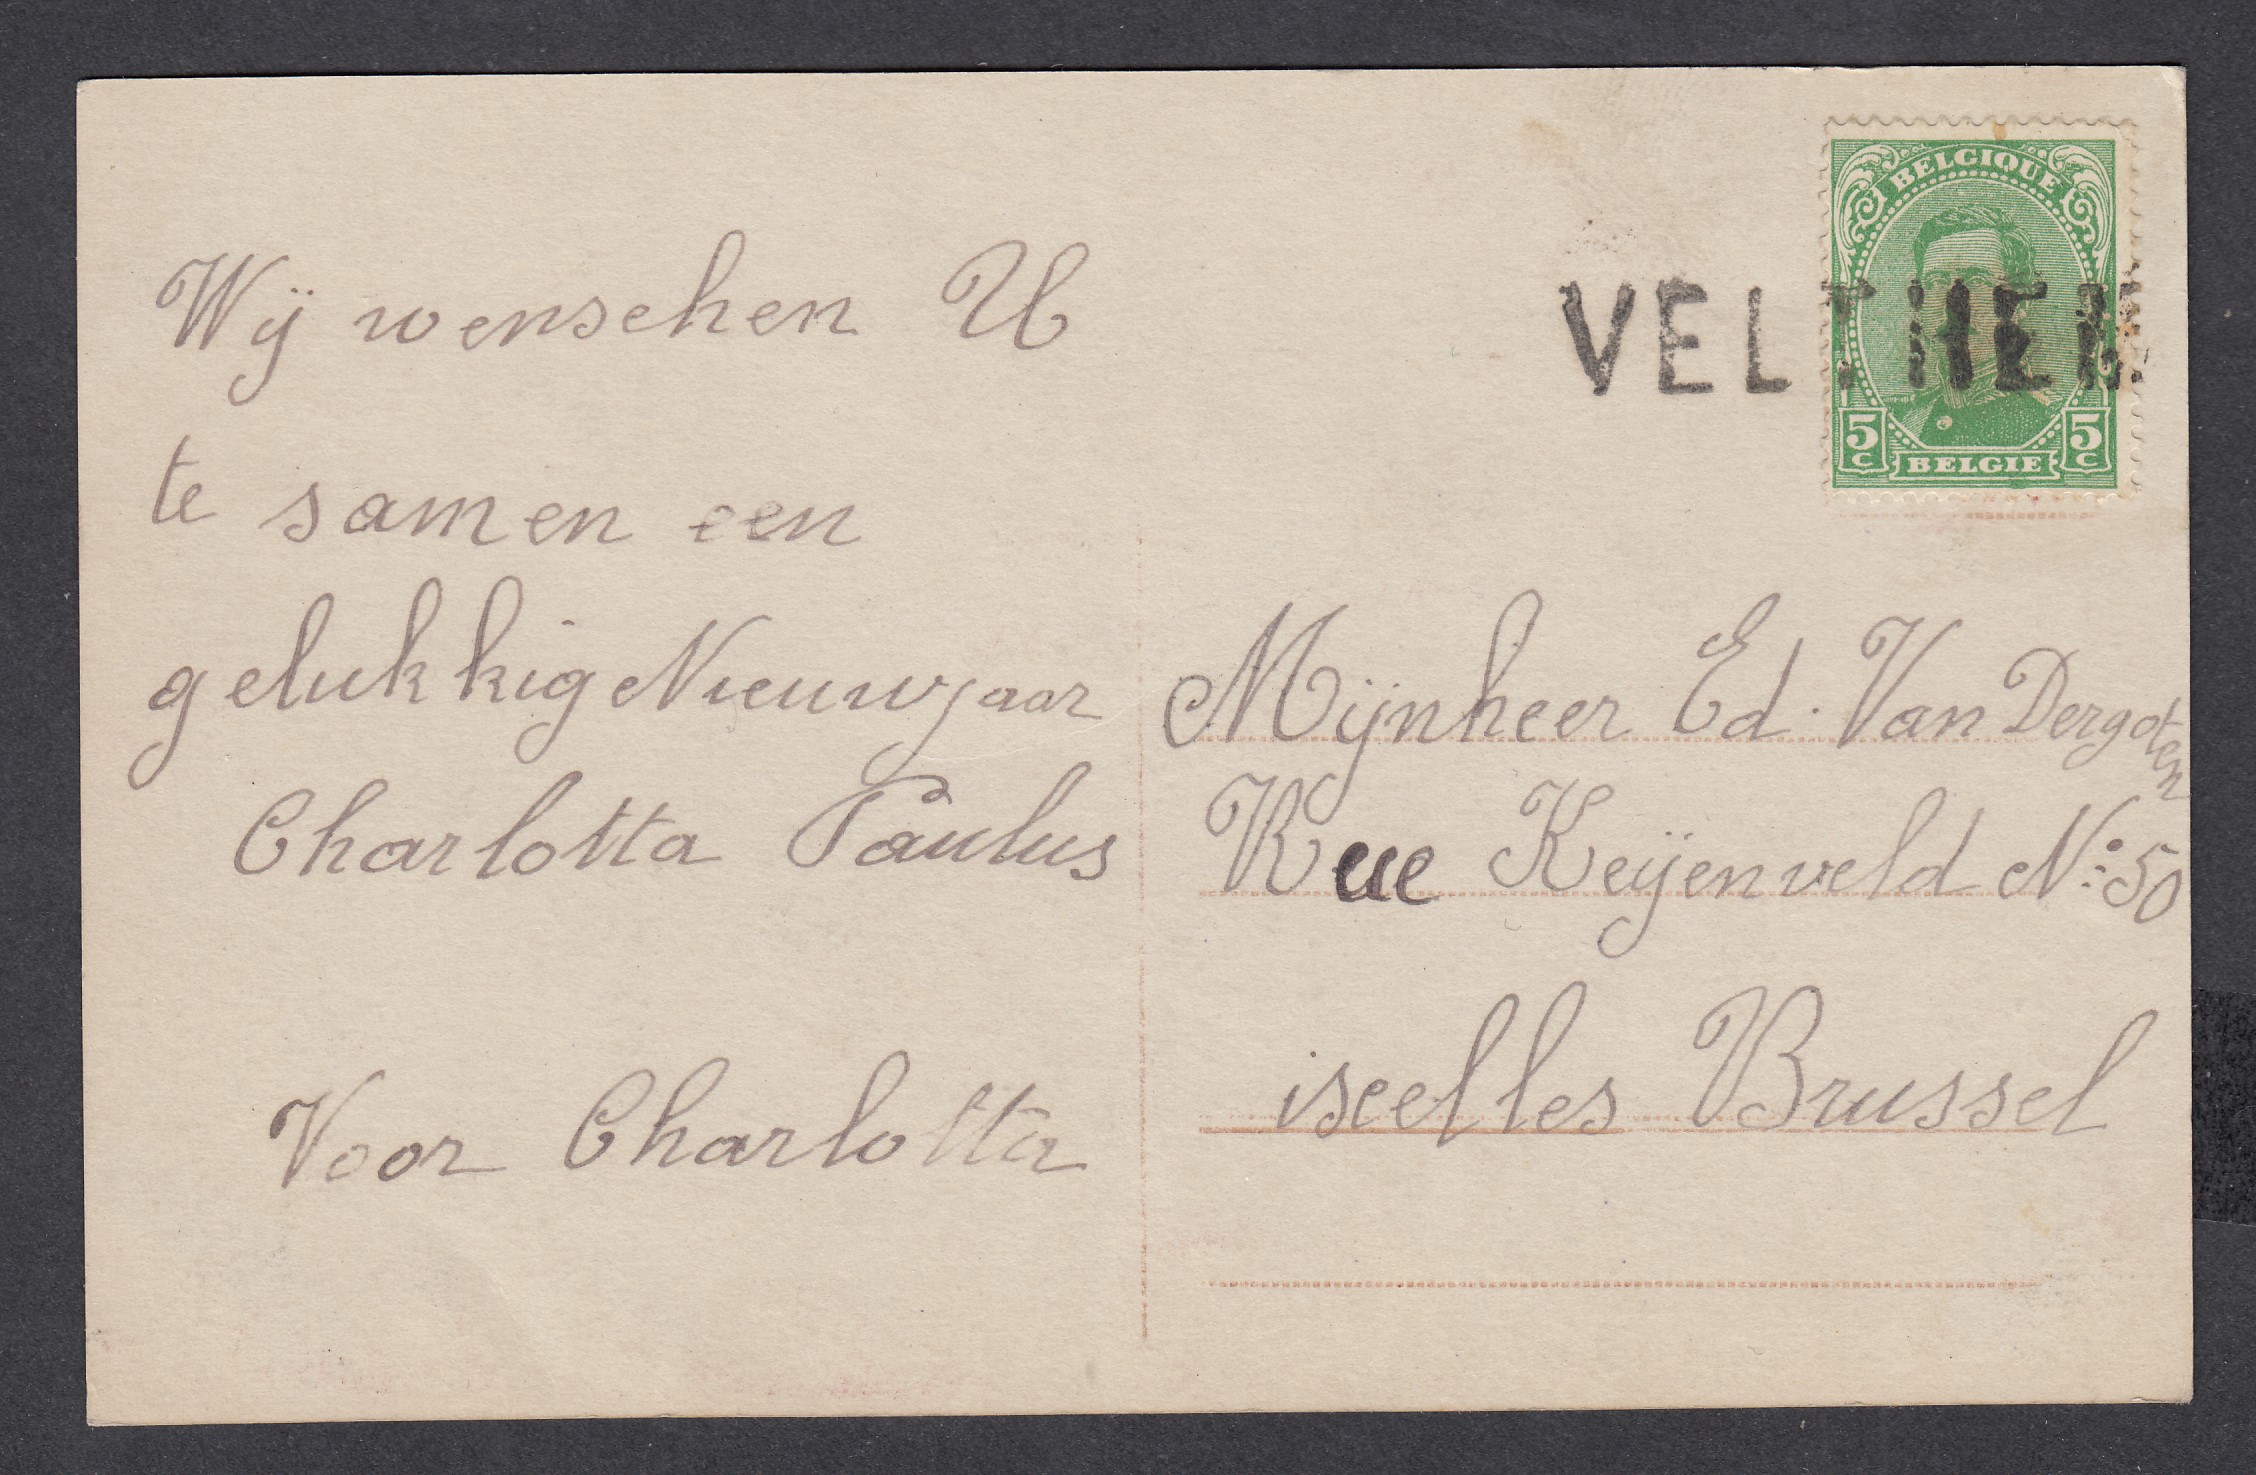 Wij wenschen U
te samen een
gelukkig Nieuwjaar
Charlotta Paulus
Voor Charlotta
VELTHEM
BELGIQUE
5 C
5 C
BELGIE
Mijnheer Ed. Van Dergoten
Rue Keijenveld No: 50
iseelles Brussel